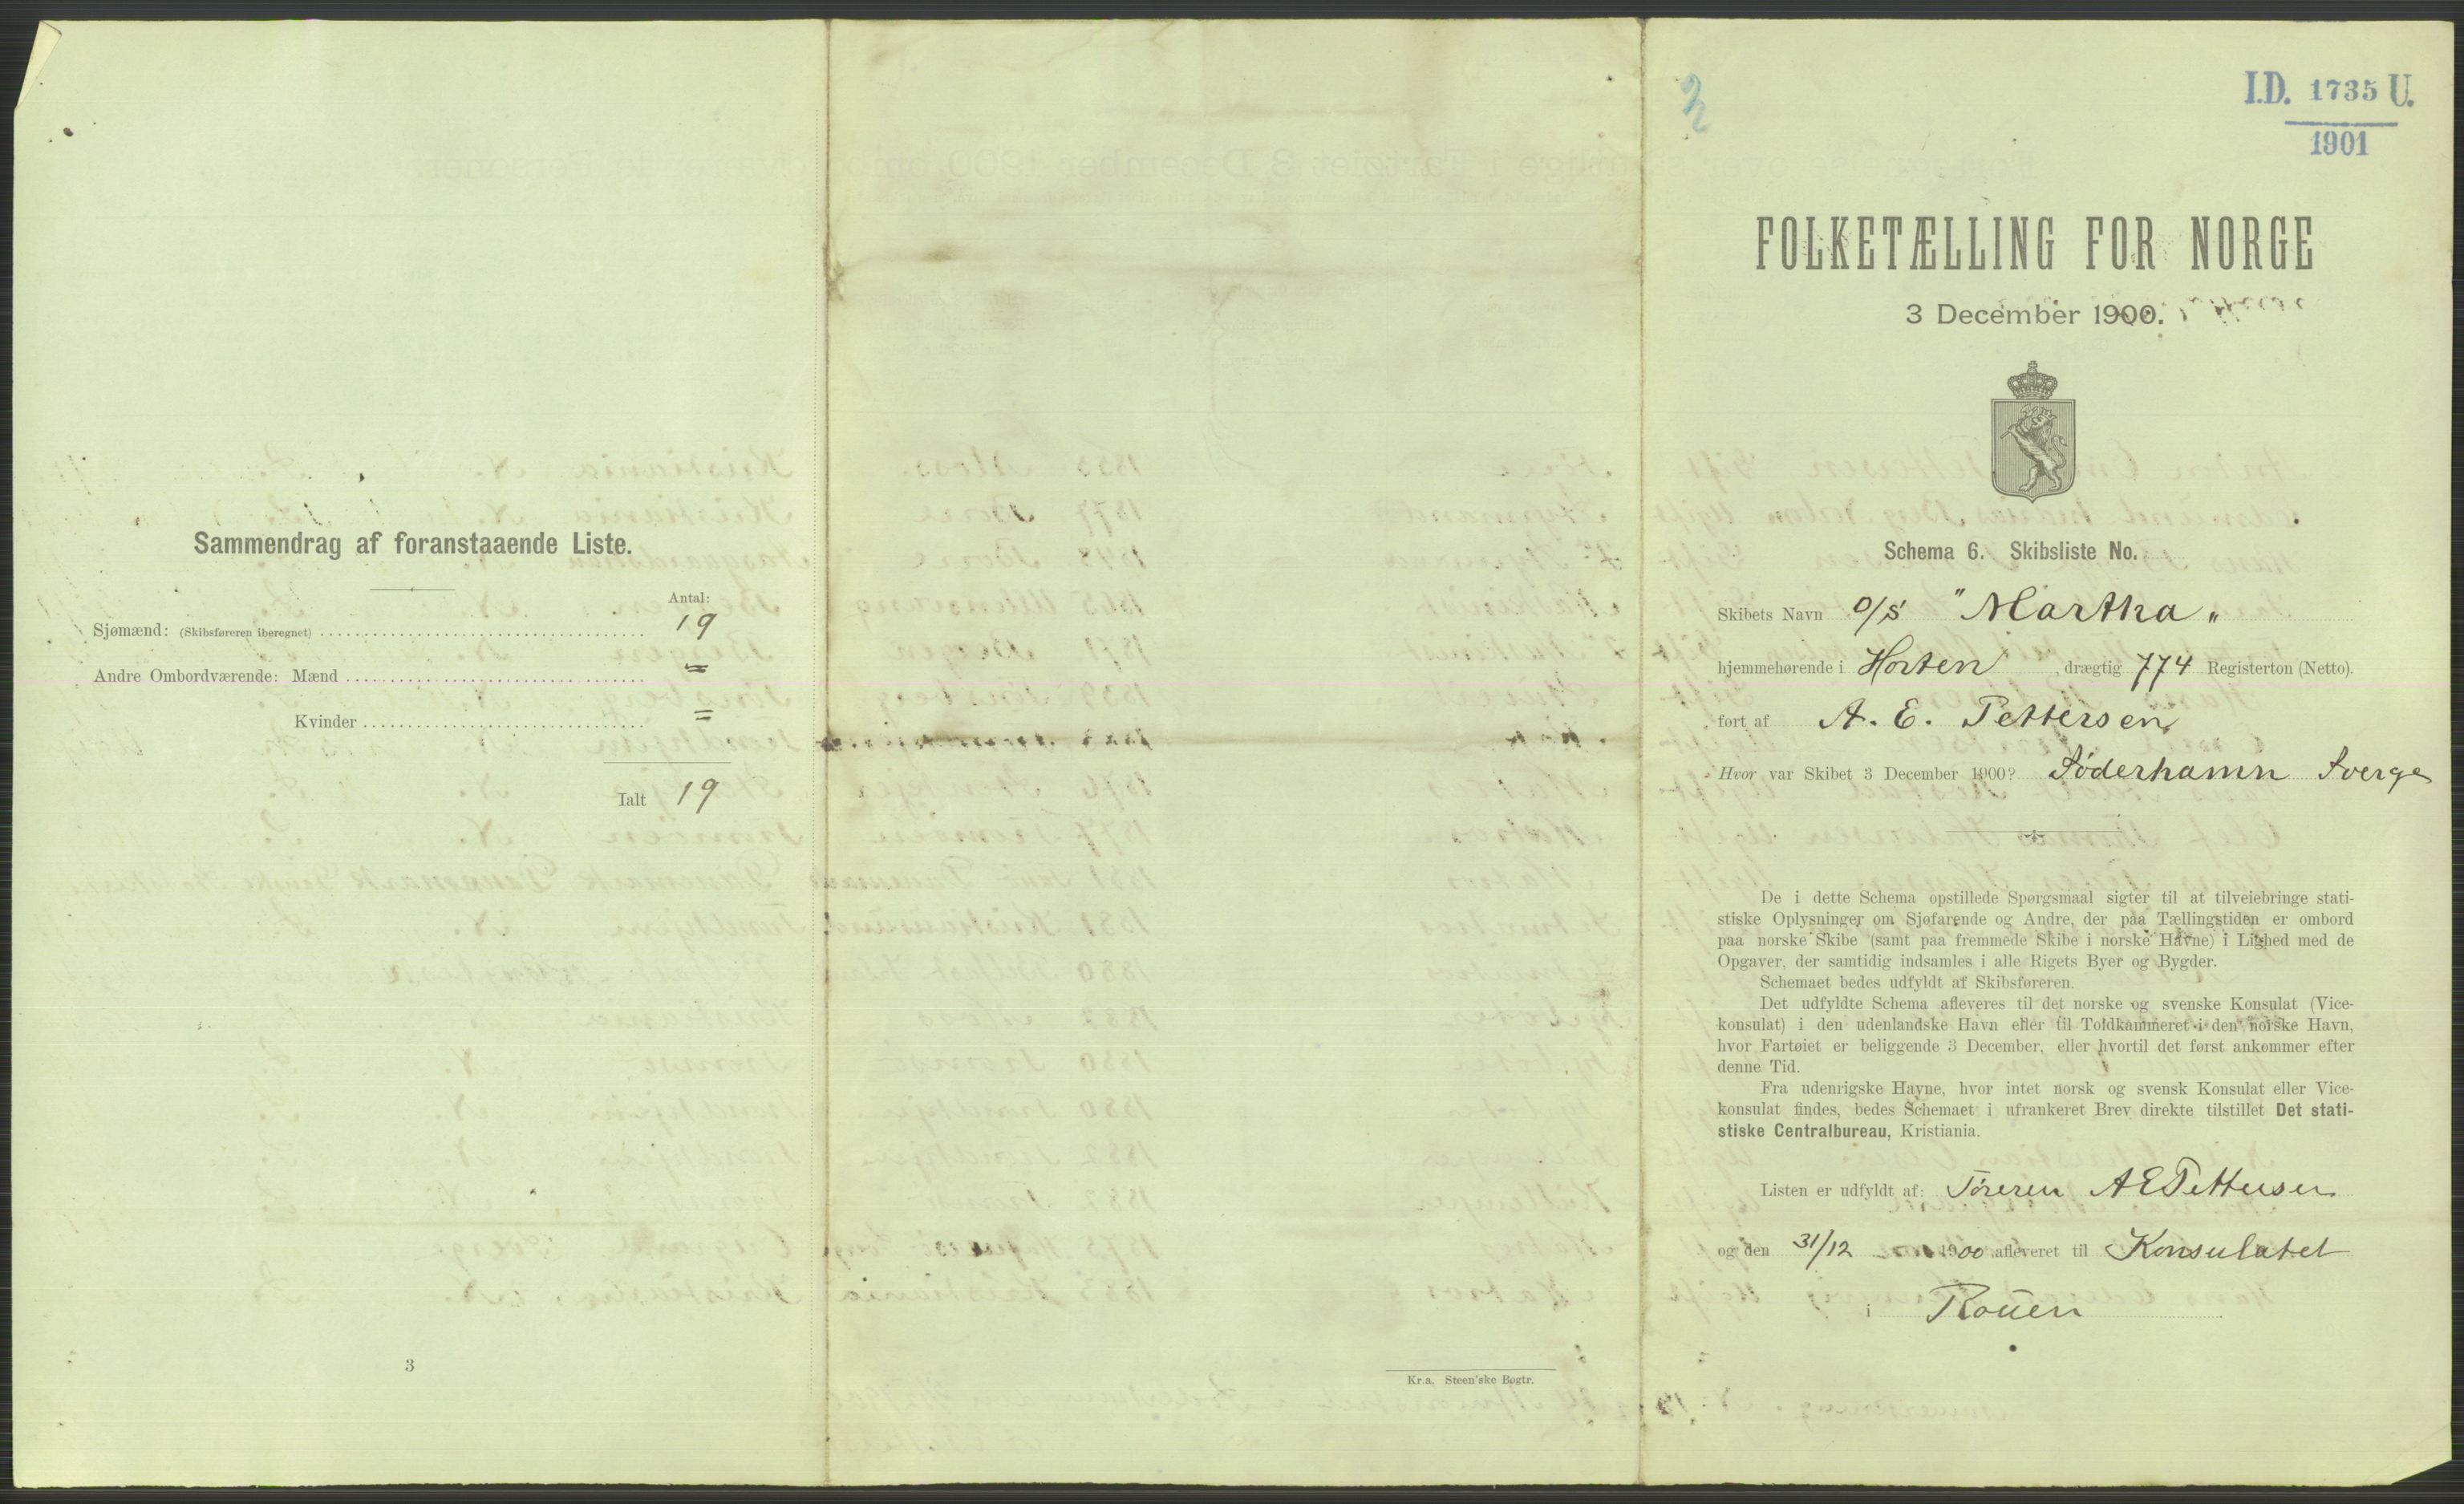 Sammendrag af foranstaaende Liste.
Antal:
Sjømænd: (Skibsføreren iberegnet) 19
Andre Ombordværende: Mænd =
Kvinder =
Ialt 19
3
Kr.a. Steen'ske Bogtr.
2
I.D. 1735 U.
1901
FOLKETÆLLING FOR NORGE
3 December 1900.
Schema 6. Skibsliste No.
Skibets Navn D/S "Martha"
hjemmehørende i Horten, drægtig 774 Registerton (Netto).
ført af A. E. Pettersen
Hvor var Skibet 3 December 1900? Söderhamn Sverge
De i dette Schema opstillede Spørgsmaal sigter til at tilveiebringe stati-
stiske Oplysninger om Sjøfarende og Andre, der paa Tællingstiden er ombord
paa norske Skibe (samt paa fremmede Skibe i norske Havne) i Lighed med de
Opgaver, der samtidig indsamles i alle Rigets Byer og Bygder.
Schemaet bedes udfyldt af Skibsføreren.
Det udfyldte Schema afleveres til det norske og svenske Konsulat (Vice-
konsulat) i den udenlandske Havn eller til Toldkammeret i den norske Havn,
hvor Fartøiet er beliggende 3 December, eller hvortil det først ankommer efter
denne Tid.
Fra udenrigske Havne, hvor intet norsk og svensk Konsulat eller Vice-
konsulat findes, bedes Schemaet i ufrankeret Brev direkte tilstillet Det stati-
stiske Centralbureau, Kristiania.
Listen er udfyldt af: Føreren A E Pettersen
og den 31/12 1900 afleveret til Konsulatet
i Rouen